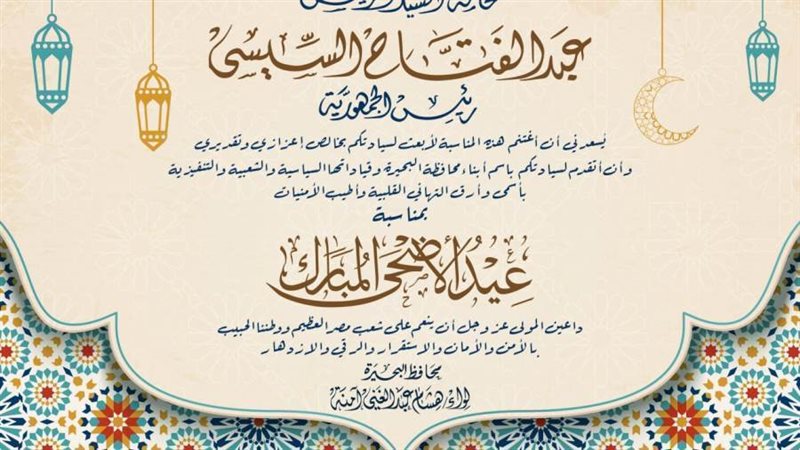 فخامة السيد الرئيس
عبد الفتاح السيسي
رئيس الجمهورية
يُسعدني أن أغتنم هذه المناسبة لأبعث لسيادتكم بخالص إعزازي وتقديري
وأن أتقدم لسيادتكم باسم أبناء محافظة البحيرة وقياداتها السياسية والشعبية والتنفيذية
بأسمى وأرق التهاني القلبية وأطيب الأمنيات
بمناسبة
عِيدُ الأَضْحَى المُبَارَك
داعين المولى عز وجل أن ينعم على شعب مصر العظيم ووطننا الحبيب
بالأمن والأمان والاستقرار والرقي والازدهار
محافظ البحيرة
لواء/ هشام عبد الغني آمنة